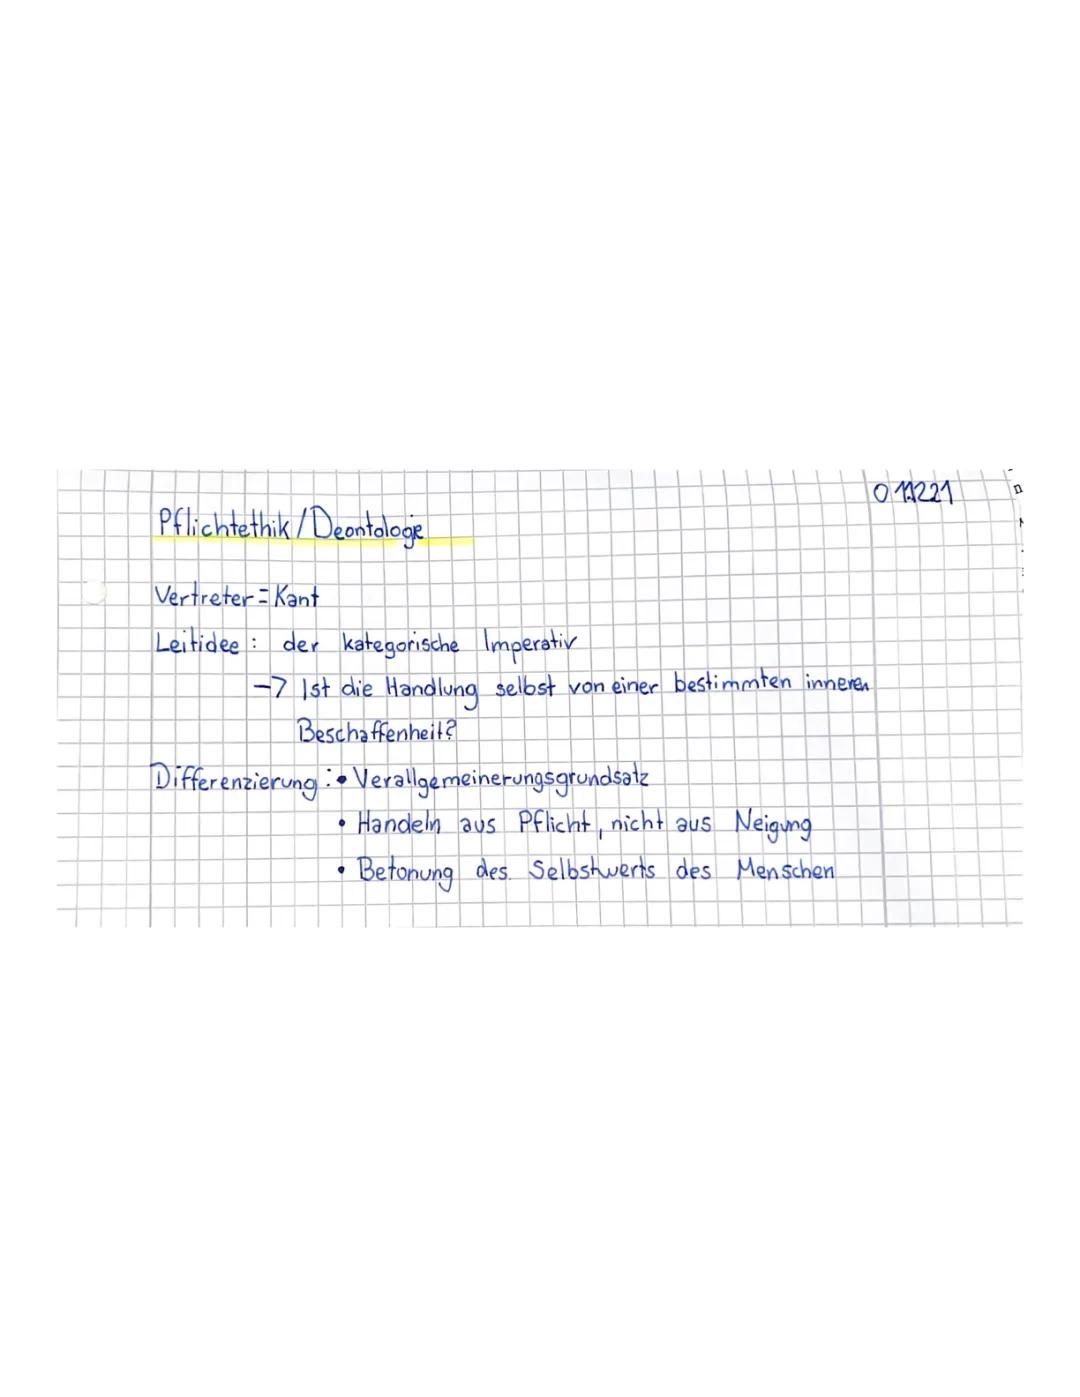 Pflichtethik/Deontologie
Vertreter = Kant
Leitidee : der kategorische Imperativ
→ Ist die Handlung selbst von einer bestimmten inneren
Beschaffenheit?
Differenzierung : • Verallgemeinerungsgrundsatz
• Handeln aus Pflicht, nicht aus Neigung
• Betonung des Selbstwerts des Menschen